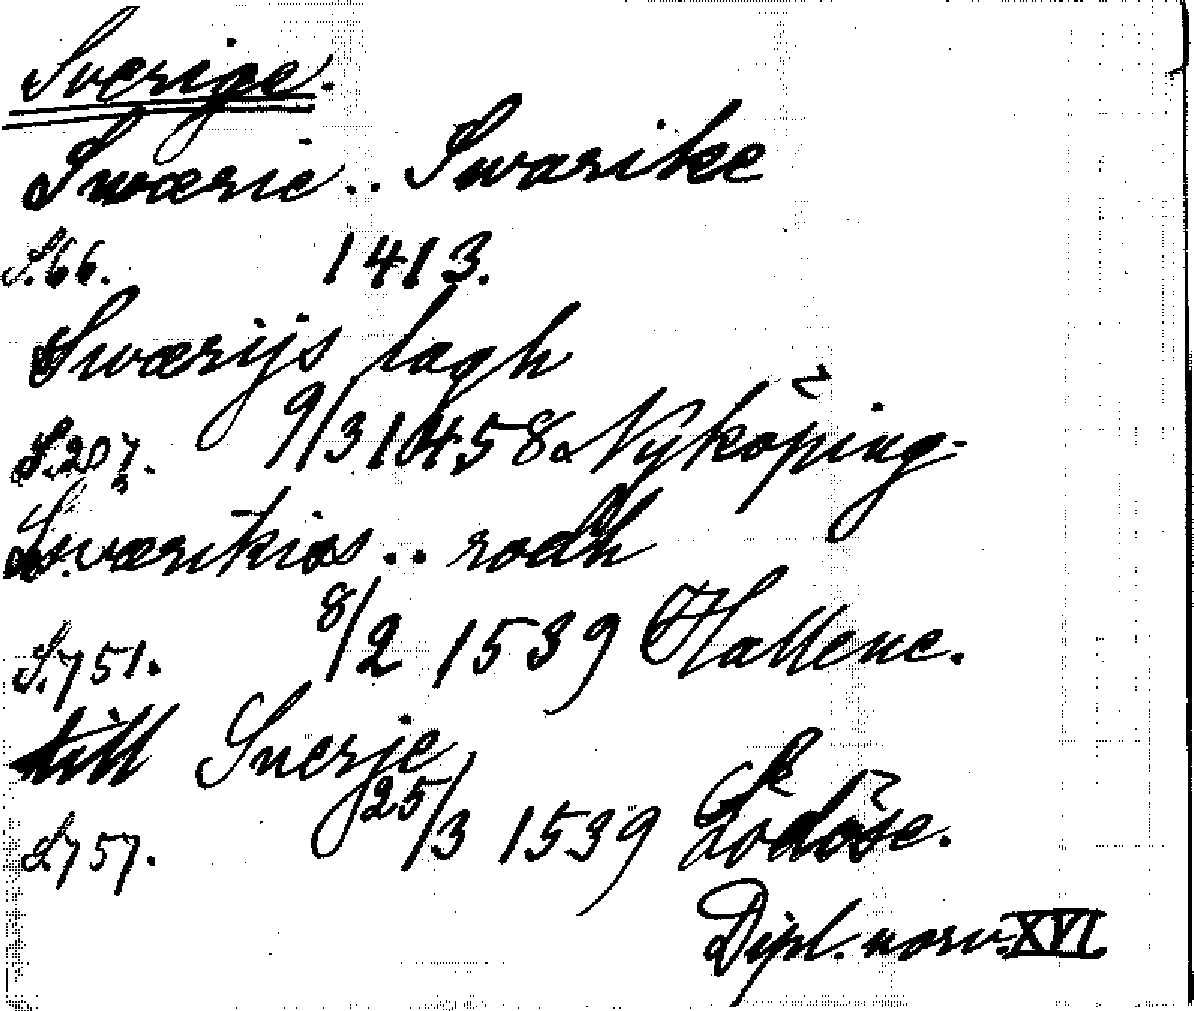 Sverige.
Swærie.. Swarike
S.66. 1413.
Swærijs lagh
S.207. 9/3 1458 Nyköping.
Swærikias.. radh
S.751. 8/2 1539 Hallene.
till Suerje
S.757. 25/3 1539 Lödöse.
Dipl. norv. XVI.